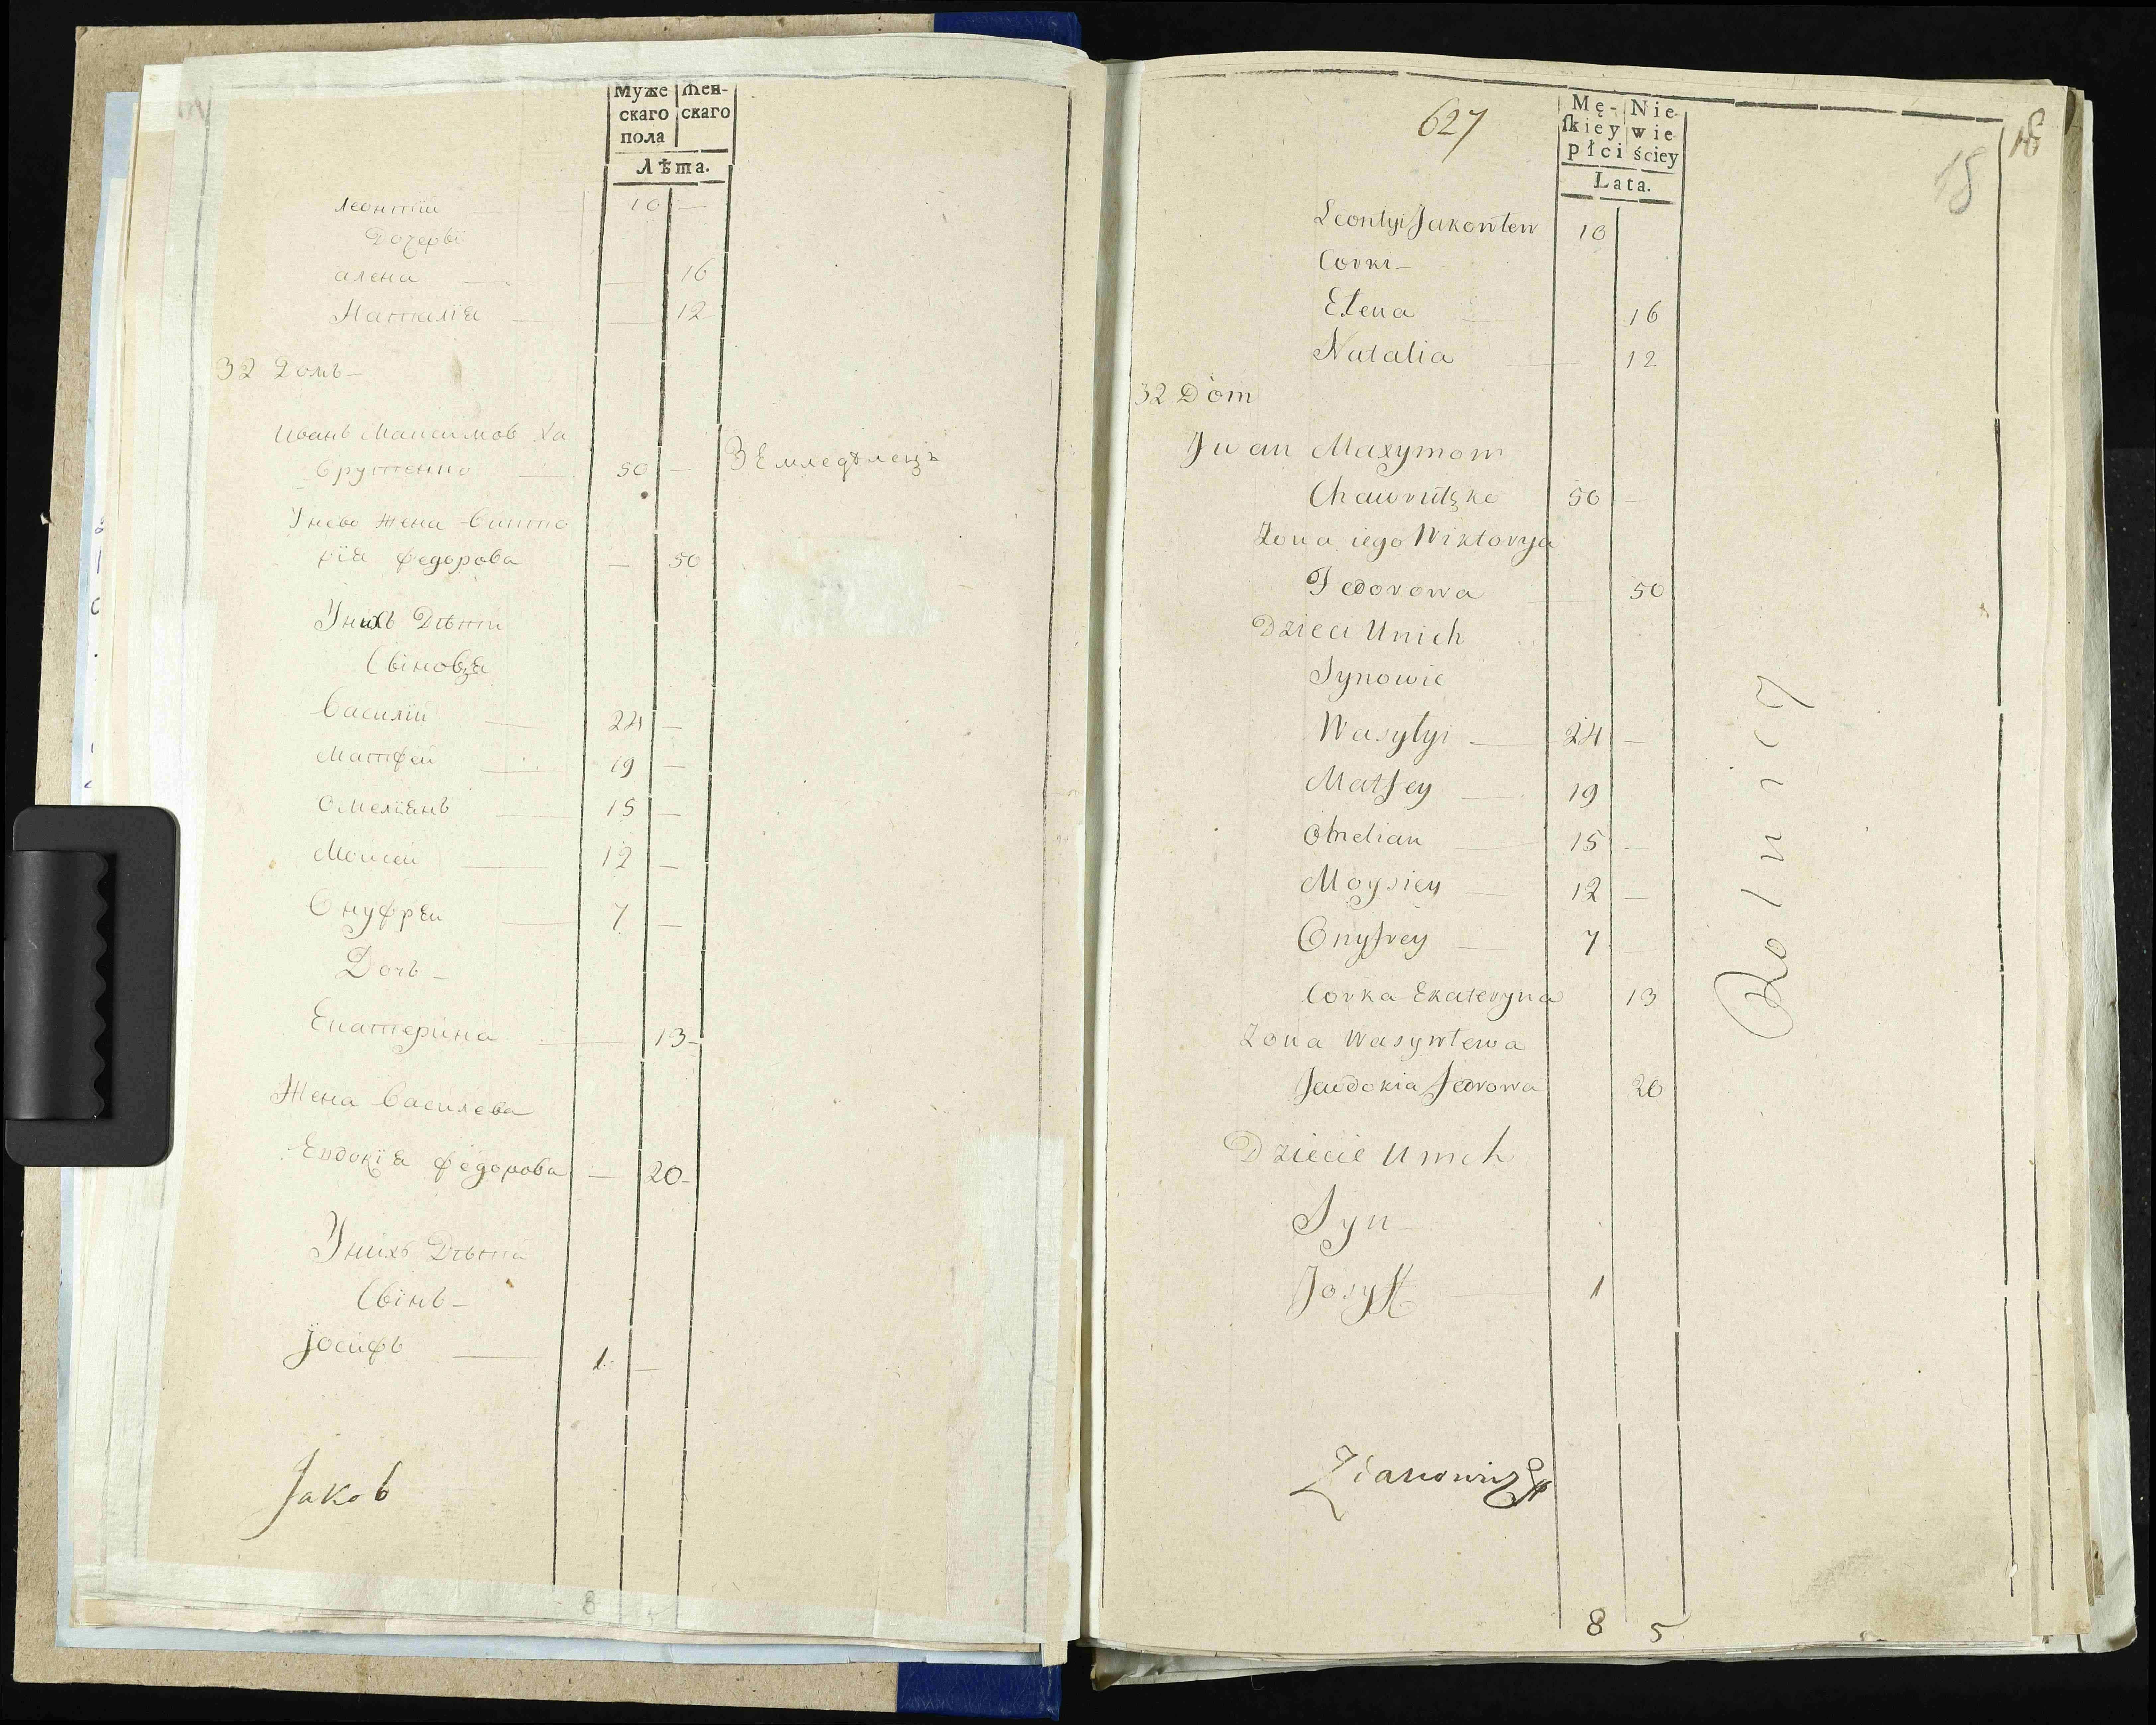 Муже
скаго
пола
Жен-
скаго
Лѣта.
Леонтій 10 —
Дочерві
алена — 16
Наталія — 12
32 Домъ —
Иванъ Максимов Ха
врутенко 50 — Земледѣлецъ
Унево Жена Викто
рія федорова — 50
Унихъ Дѣти
Свіновя
Василій 24 —
Матфей 19 —
Омеліянъ 15 —
Моисей 12 —
Онуфрей 7 —
Дочь —
Екатерина 13 —
Жена Василева
Евдокія федорова — 20 —
Унихъ Дѣти
Свінъ —
Іосифъ 1 —
Jakob
8
627
Mę-
skiey
płci
Nie-
wie
ściey
Lata.
18
18
Leontyi Jakowlew 10
Corki —
Elena 16
Natalia 12
32 Dom
Jwan Maxymow
Chawrutzke 50 —
Zona iego Wiktorya
Fedorowa 50
Dzieci Unich
Synowie
Wasylyi — 24 —
Matfey — 19
Omelian 15 —
Moysiey — 12 —
Onyfrey — 7
Corka Ekateryna 13
Zona Wasylewa
Jewdokia 20
Dziecie Unich
Syn
Josyff 1
Rolnicy
8 5